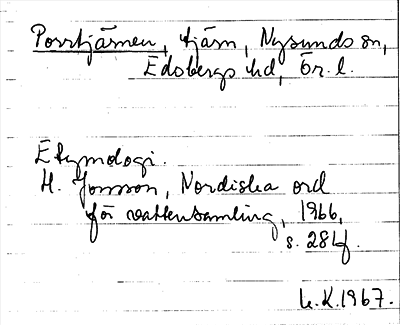 Porrtjärnen, tjärn, Nysunds sn,
Edsbergs hd, Ör. l.
Etymologi.
H. Jonsson, Nordiska ord
för vattensamling, 1966,
s. 284f.
L.K.1967.